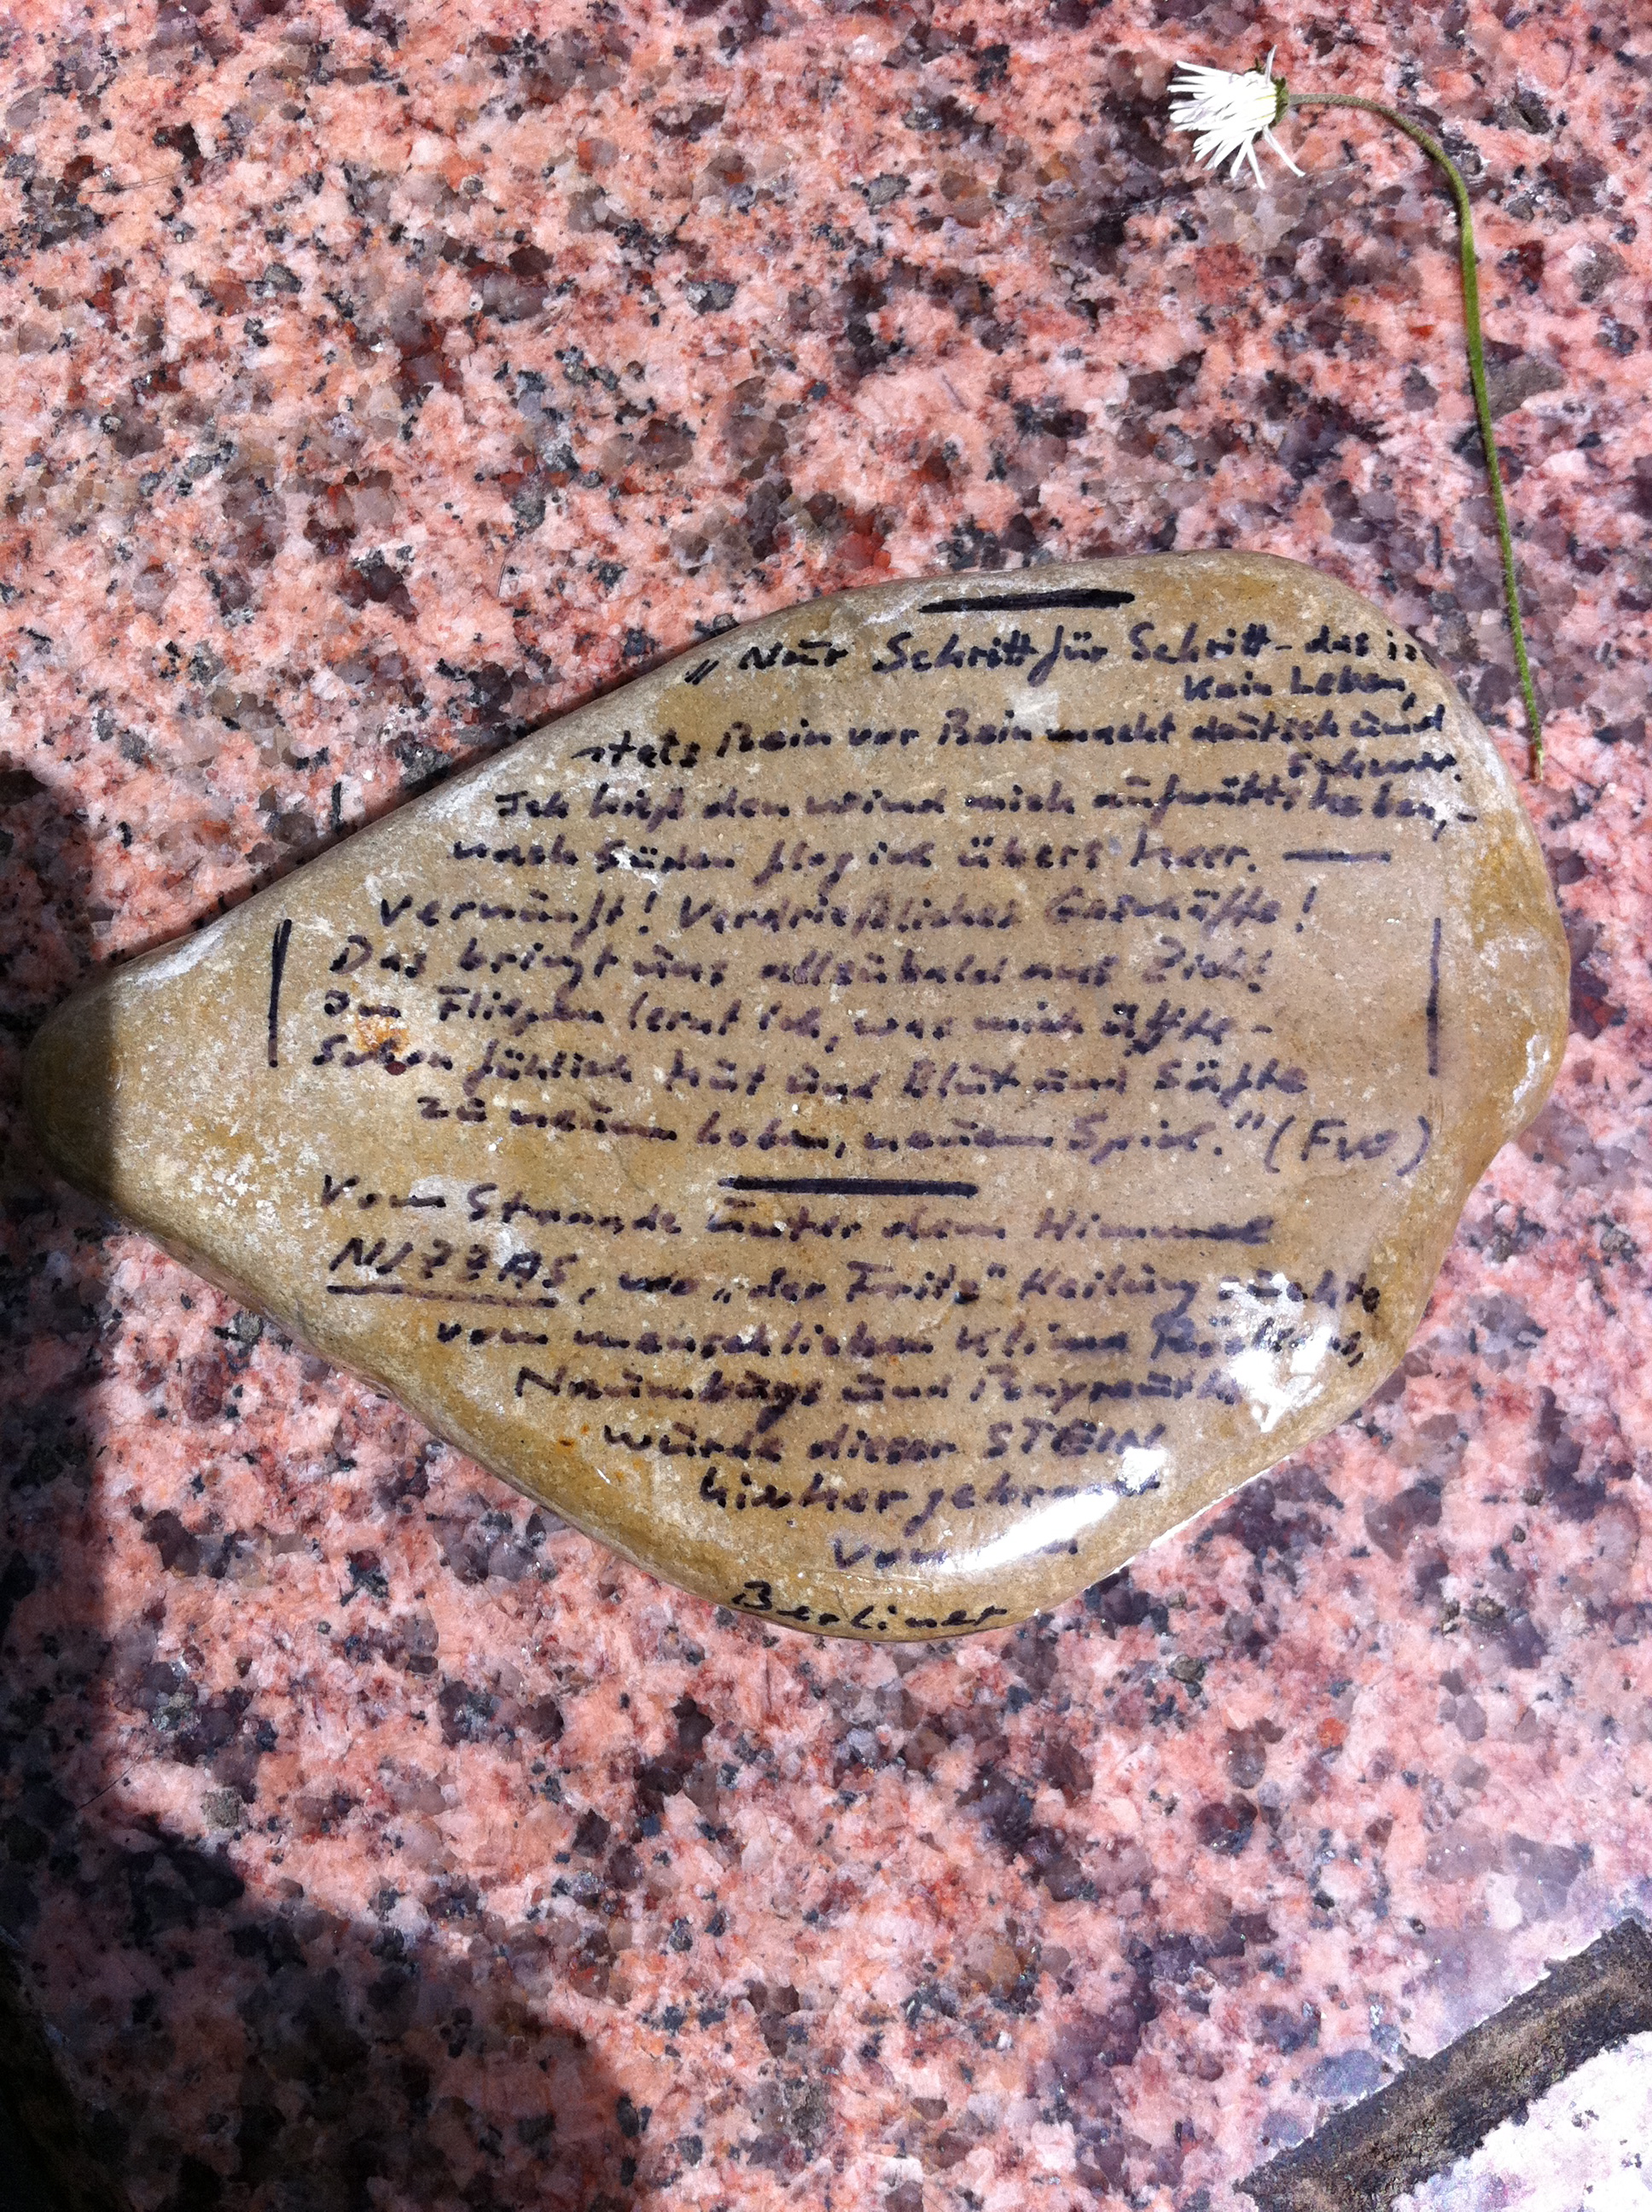 „Nur Schritt für Schritt – das is
kein Leben,
stets Bein vor Bein macht deutsch und
schwer.
Ich hieß den Wind mich aufwärts heben,
nach Süden flog ich übers Meer. —
Vernunft! Verdrießliches Geschäfte!
Das bringt uns allzubald ans Ziel!
Im Fliegen lernt ich, was mich äffte –
Schon fühl ich Mut und Blut und Säfte
zu neuem Leben, neuem Spiel." (FWN)
Vom Strande unter dem Himmel
NIZZAS, wo „der Fritz" Heilung suchte
vom menschlichen Klima
Naumburgs und Bayreuths
wurde dieser STEIN
hierher
vom
Berliner